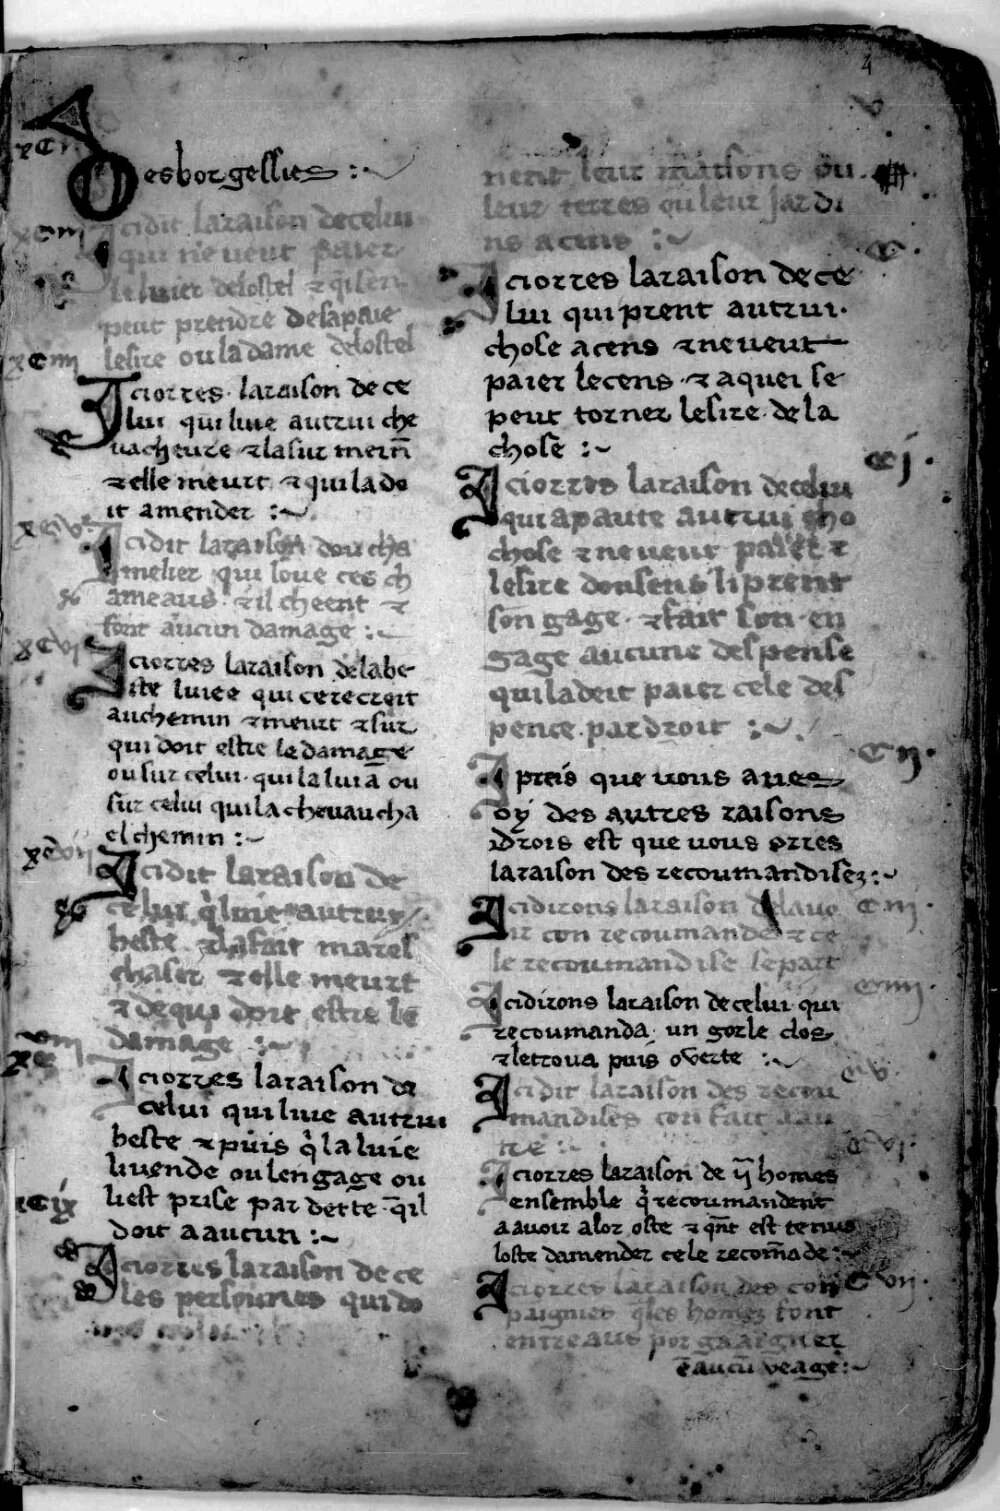 4
Des borgessies :~
xciii Ici dit la raison de celui
qui ne veut paier
le luier de lostel ⁊ q̄l sen
peut prendre de sa paie
xciiii le sire ou la dame de lostel
Ici orres la raison de ce
lui qui luie autrui che
vacheure ⁊ la sur mein
⁊ elle meurt ⁊ qui la do
it amender :~
xcv Ici dit la raison dou cha
melier qui loue ces ch
ameaus ⁊ il cheent ⁊
font aucun damage :~
xcvi Ici orres la raison de la be
ste luiee qui ce recroit
au chemin ⁊ meurt ⁊ sur
qui doit estre le damage
ou sur celui qui la luia ou
sur celui qui la chevaucha
el chemin :~
xcvii Ici dit la raison de
celui q̇ luie autrui
beste ⁊ la fait mares
chaser ⁊ elle meurt
⁊ de qui doit estre le
damage :~
xcviii Ici orres la raison de
celui qui luie autrui
beste ⁊ puis q̇ la luie
li vende ou lengage ou
xcix li est prise par dette q̄ il
doit a aucun :~
Ici orres la raison de ce
les persounes qui do
nent leur maisons ou
leur terres ou leur jardi
ns a cens :~
c Ici orres la raison de ce
lui qui prent autrui
chose a cens ⁊ ne veut
paier le cens ⁊ a quei se
peut torner le sire de la
chose :~
ci Ici orres la raison de celui
qui apaute autrui cho
chose ⁊ ne veut paier ⁊
le sire dou sens li prent
son gage ⁊ fait son en
gage aucune despense
qui la deit paier cele des
pence par droit :~
cii Apreis que vous aves
oy des autres raisons
drois est que vous orres
la raison des recoumandises :~
ciii Ici dirons la raison de lavo
ir con recoumande ⁊ ce
le recoumandise se part
ciiii Ici dirons la raison de celui qui
recoumanda un gorle clos
⁊ le trova puis overte :~
cv Ici dit la raison des recou
mandises con fait a au
tre :~
cvi Ici orres la raison de ii homes
ensemble q̇ recoumandent
a avoir a lor oste ⁊ q̄nt est tenus
loste damender cele recom̄ade :~
cvii Ici orres la raison des con
paignies q̄ les homes font
entre aus por gaaigner
ē aucū veage :~